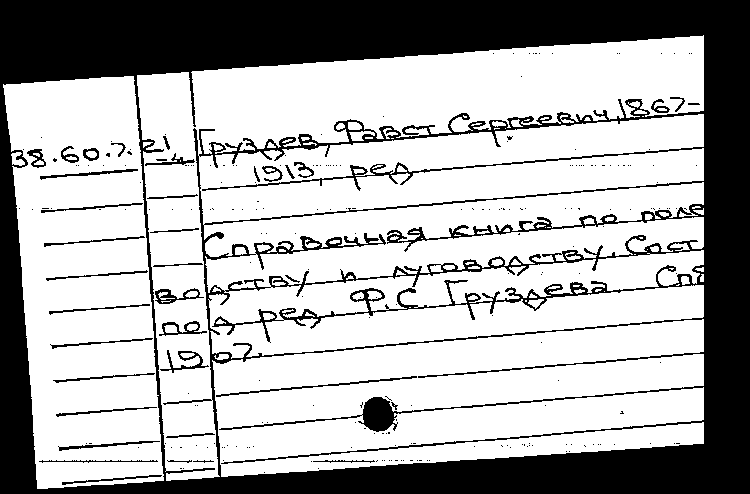 38.60.7.21 Груздев, Фавст Сергеевич, 1867-
-4
1913, ред.
Справочная книга по поле
водству и луговодству. Сост.
под ред. Ф.С. Груздева. Спб
1907.